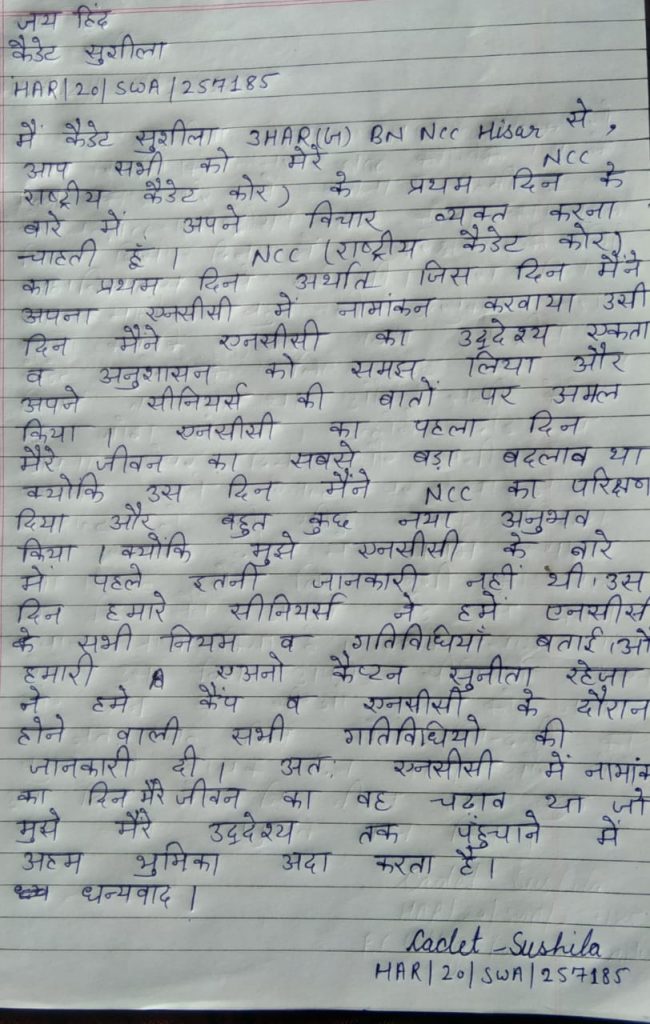 जय हिंद
कैडेट सुशीला
HAR/20/SWA/257185
मैं कैडेट सुशीला 3HAR(G) BN NCC Hisar से,
आप सभी को मेरे NCC
राष्ट्रीय कैडेट कोर) के प्रथम दिन के
बारे में अपने विचार व्यक्त करना
चाहती हूं। NCC (राष्ट्रीय कैडेट कोर)
का प्रथम दिन अर्थात जिस दिन मैंने
अपना एनसीसी में नामांकन करवाया उसी
दिन मैंने एनसीसी का उद्देश्य एकता
व अनुशासन को समझ लिया और
अपने सीनियर्स की बातों पर अमल
किया। एनसीसी का पहला दिन
मेरे जीवन का सबसे बड़ा बदलाव था
क्योकि उस दिन मैंने NCC का परिक्षण
दिया और बहुत कुछ नया अनुभव
किया। क्योंकि मुझे एनसीसी के बारे
में पहले इतनी जानकारी नहीं थी। उस
दिन हमारे सीनियर्स ने हमें एनसीसी
के सभी नियम व गतिविधियाँ बताई।
हमारी एअनो कैप्टन सुनीता रहेजा
ने हमे कैंप व एनसीसी के दौरान
होने वाली सभी गतिविधियो की
जानकारी दी। अतः एनसीसी में नामांक
का दिन मेरे जीवन का वह चढाव था जो
मुझे मेरे उद्देश्य तक पंहुचाने में
अहम भुमिका अदा करता है।
धन्यवाद।
Cadet - Sushila
HAR/20/SWA/257185